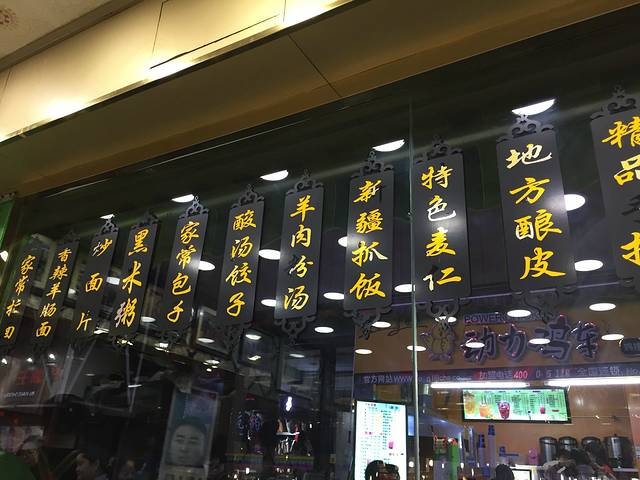 香辣羊肠面
炒面片
黑米粥
家常包子
酸汤饺子
羊肉粉汤
新疆抓饭
特色麦仁
地方酿皮
精品
POWER
动力玛车
官方网站www
加盟电话400
全国连锁